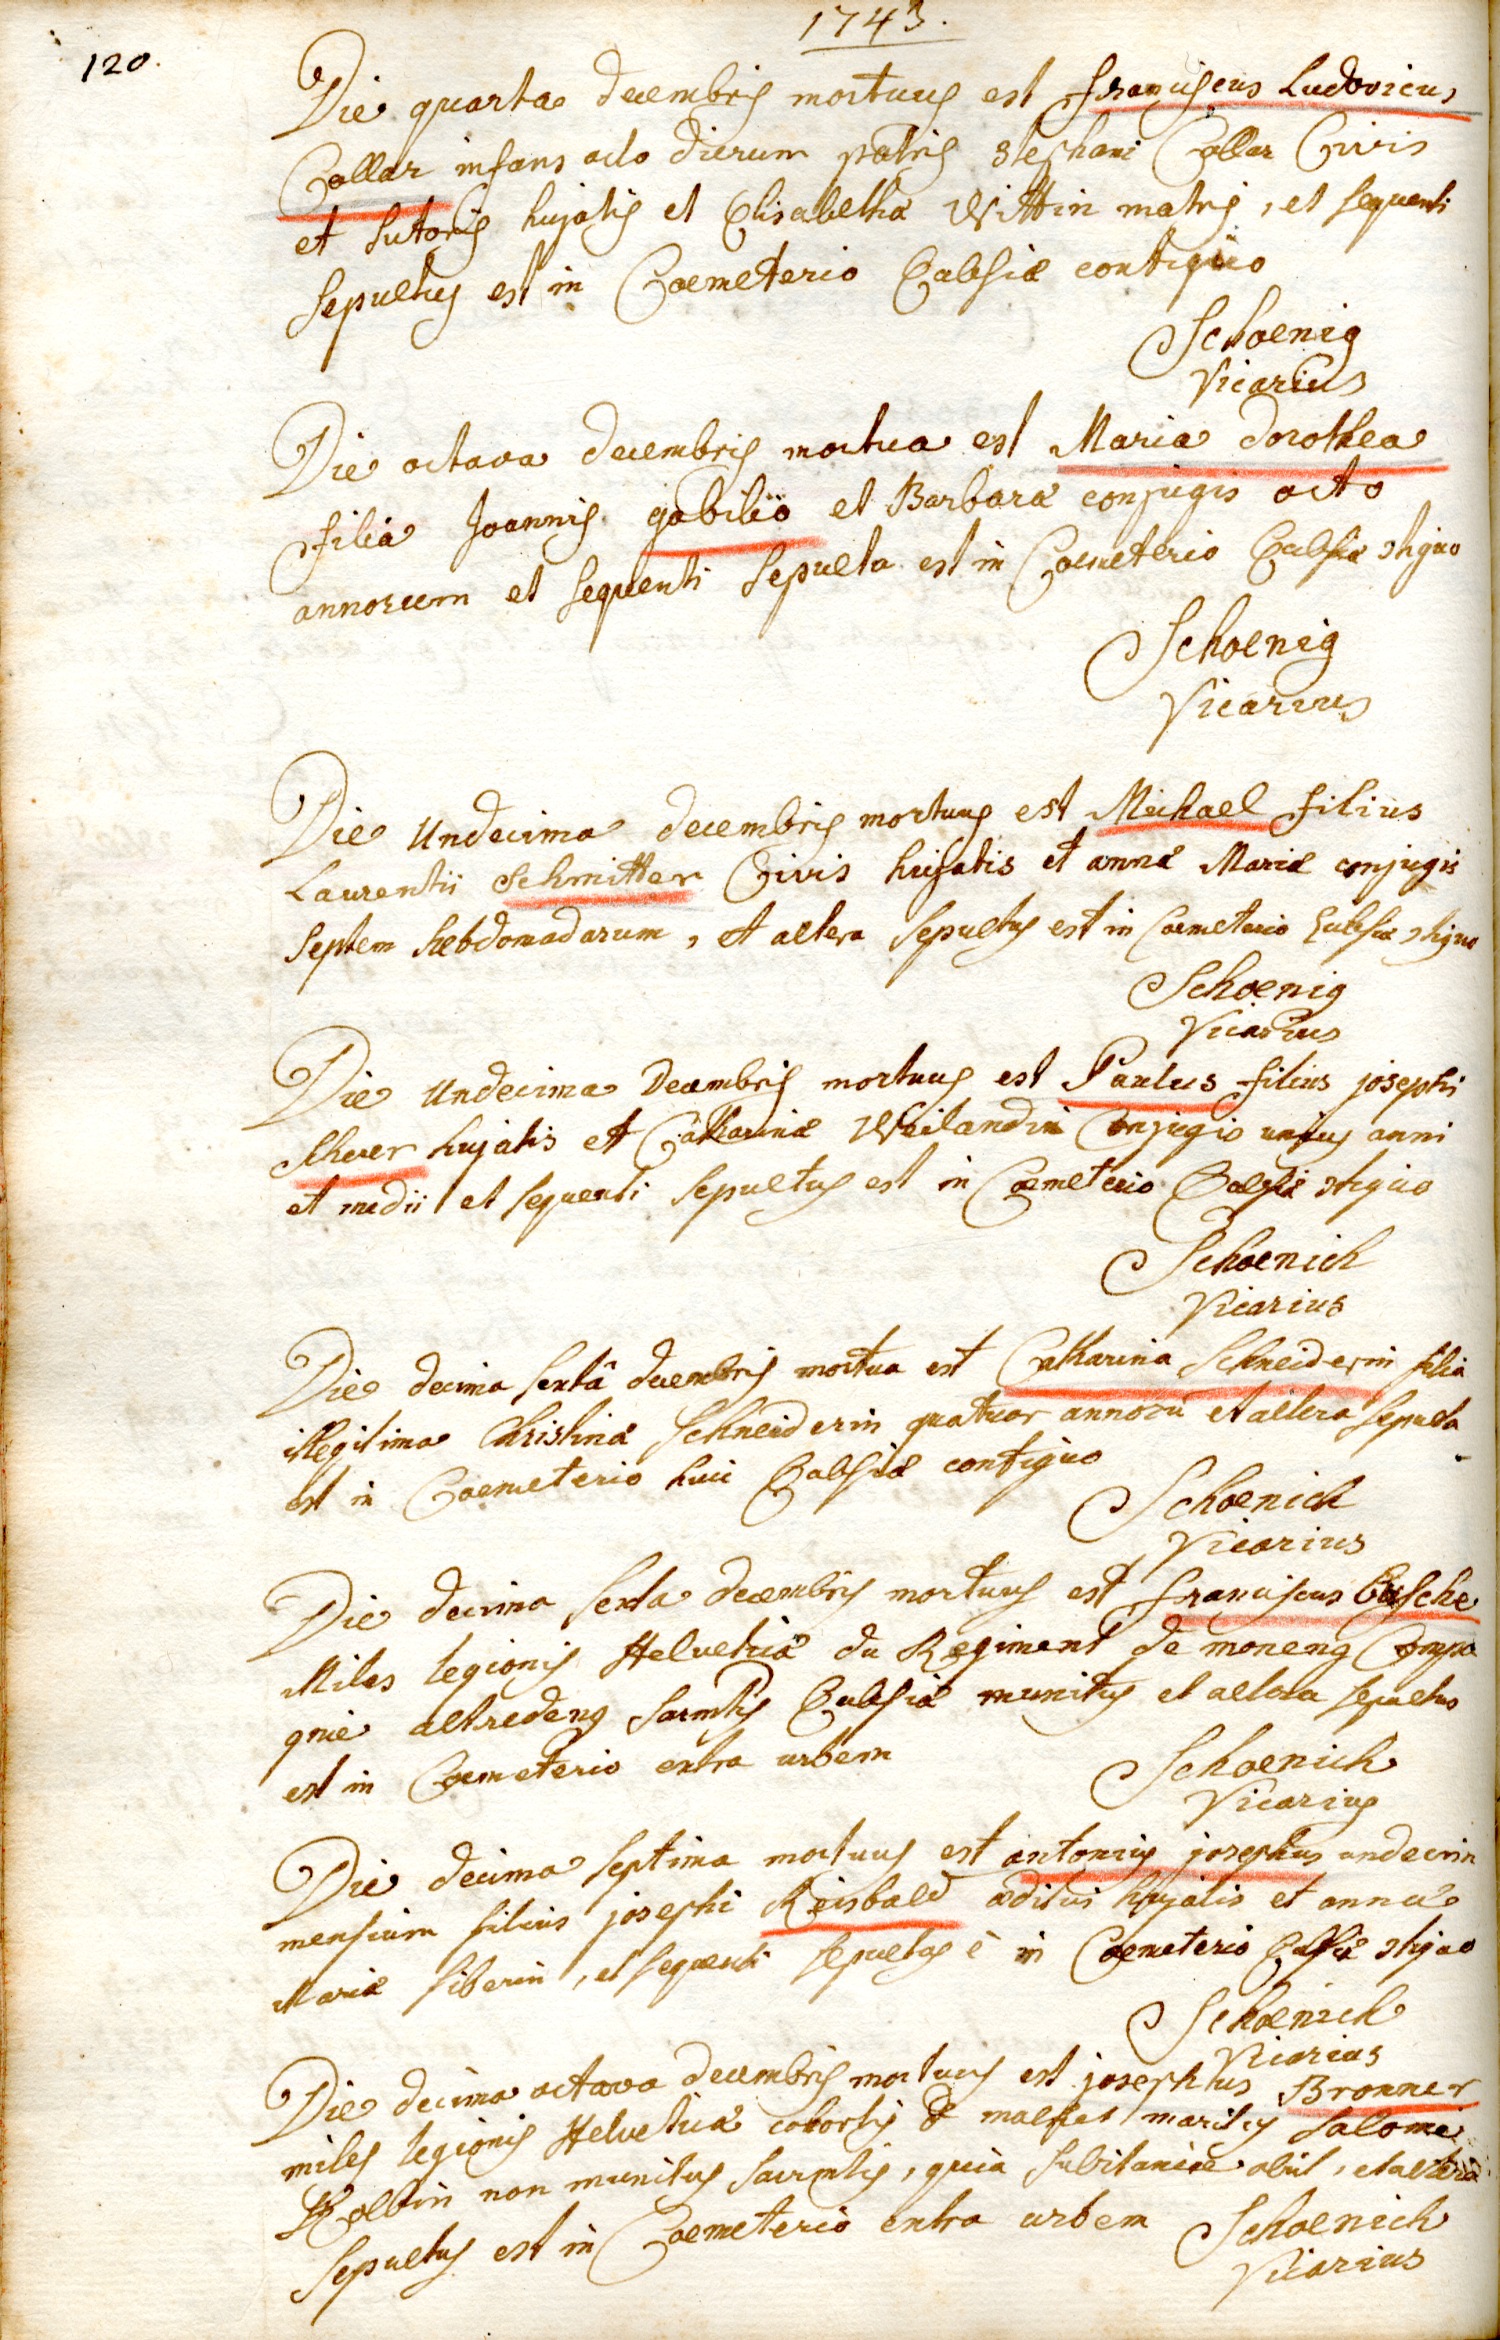 1743.
120.
Die quarta decembris mortuus est franciscus Ludovicus
Collar infans octo dierum patris stephani Collar Civis
et sutoris hujatis et Elisabethæ Wittin matris, et sequenti
sepultus est in Coemeterio Eccelsiæ contiguo
Schoenig
Vicarius
Die octava decembris mortua est Maria dorothea
filia Joannis gobilio et Barbaræ conjugis octo
annorum et sequenti sepulta est in Coemeterio Ecclesiæ 3tiguo
Schoenig
Vicarius
Die Undecima decembris mortuus est Michael filius
Laurentii Schmitter Civis hujatis et annæ Mariæ conjugis
septem hebdomadarum, et altera sepultus est in Coemeterio Ecclesiæ 3tiguo
Schoenig
Vicarius
Die Undecima Decembris mortuus est Paulus filius josephi
Scherer hujatis et Catharinæ Weilandin Conjugis unius anni
et medii et sequenti sepultus est in Coemeterio Ecclesiæ 3tiguo
Schoenich
Vicarius
Die decima sextâ decembris mortua est Catharina Schneiderin filia
illegitima Christinæ Schneiderin quatuor annorū et altera sepulta
est in Coemeterio huic Ecclesiæ contiguo
Schoenich
Vicarius
Die decima sexta decembris mortuus est franciscus
Miles legionis Helveticæ du Regiment de moneng Compa
gnie altredeng Sacmtis Ecclesiæ munitus et altera sepultus
est in Coemeterio extra urbem
Schoenich
Vicarius
Die decima septima mortuus est antonius josephus undecim
mensium filius josephi Reisbald æditui hujatis et annæ
Mariæ siberin, et sequenti sepultus ē in Coemeterio Ecclesiæ 3tiguo
Schoenich
Vicarius
Die decima octava decembris mortuus est josephus Bronner
miles legionis Helveticæ cohortis de maritus salome
Kolbin non munitus Sacrmtis, quia subitanie obiit, et altera
sepultus est in Coemeterio extra urbem
Schoenich
Vicarius